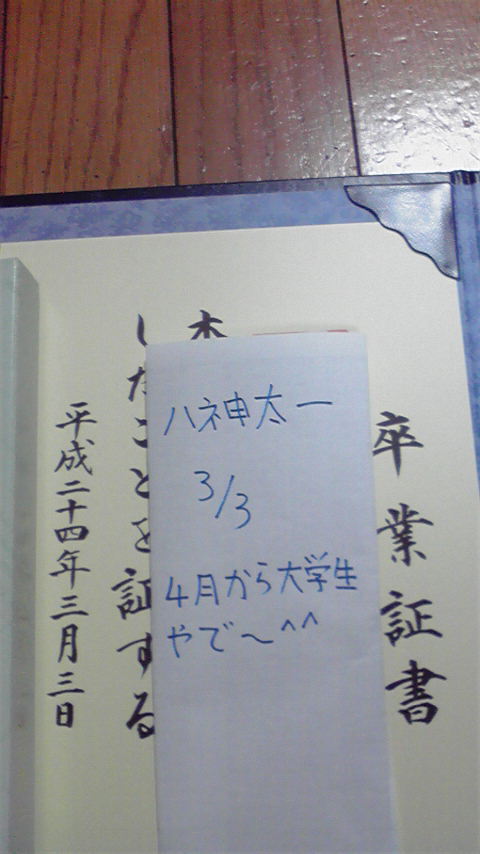 卒業証書
本
したことを証する
平成二十四年三月三日
ハネ申太一
3/3
4月から大学生
やで〜^^